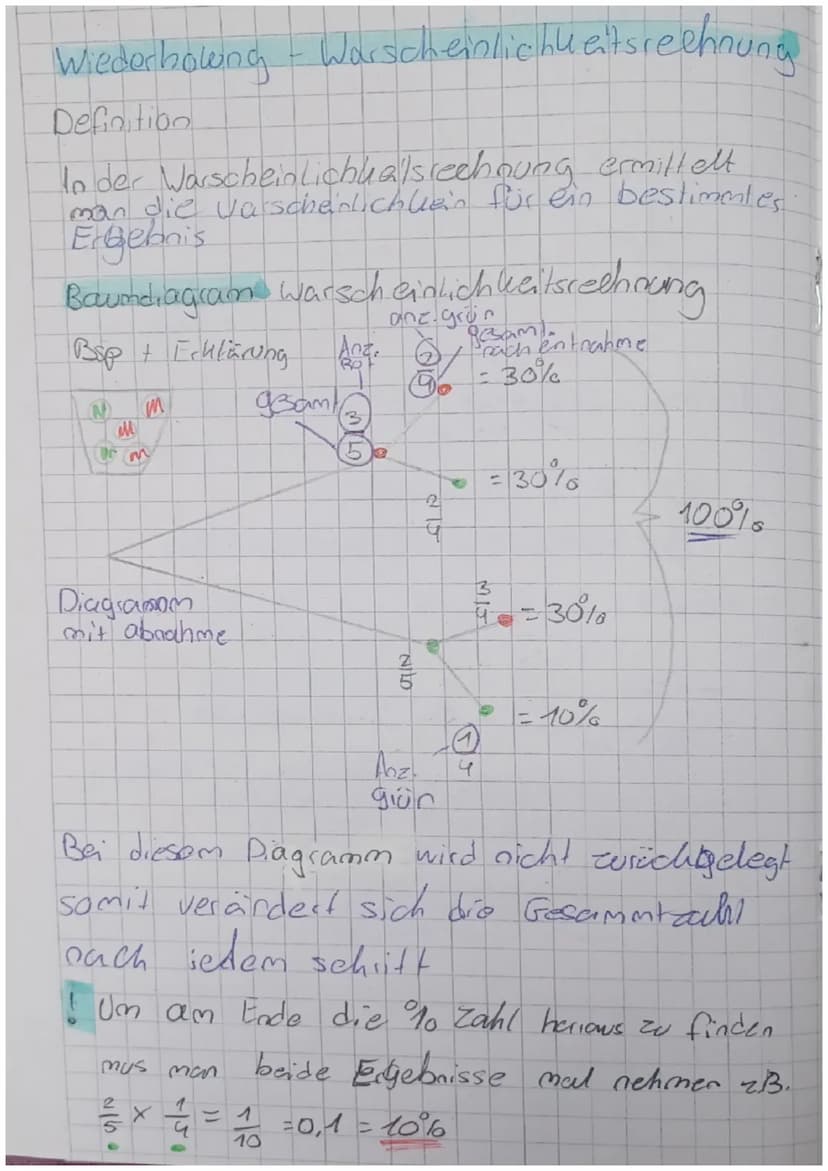 Wiederholung - Warscheinlichkeitsrechnung
Definition
In der Warscheinlichkeitsrechnung ermittelt
man die Warscheinlichkein für ein bestimmtes
Ergebnis
Baumdiagram Warscheinlichkeitsrechnung
anz. grün
gesamt.
nach entnahme
Bsp + Erklärung
Anz. Rot
2/4 = 30%
gsamt 3/5
= 30%
2/4
100%
Diagramm
mit abnahme
3/4 = 30%
2/5
= 10%
1/4
Anz.
grün
Bei diesem Diagramm wird nicht zurückgelegt
somit verändert sich die Gesammtzahl
nach jedem schritt
! Um am Ende die % Zahl heraus zu finden
mus man beide Ergebnisse mal nehmen zB.
2/5 × 1/4 = 1/10 = 0,1 = 10%